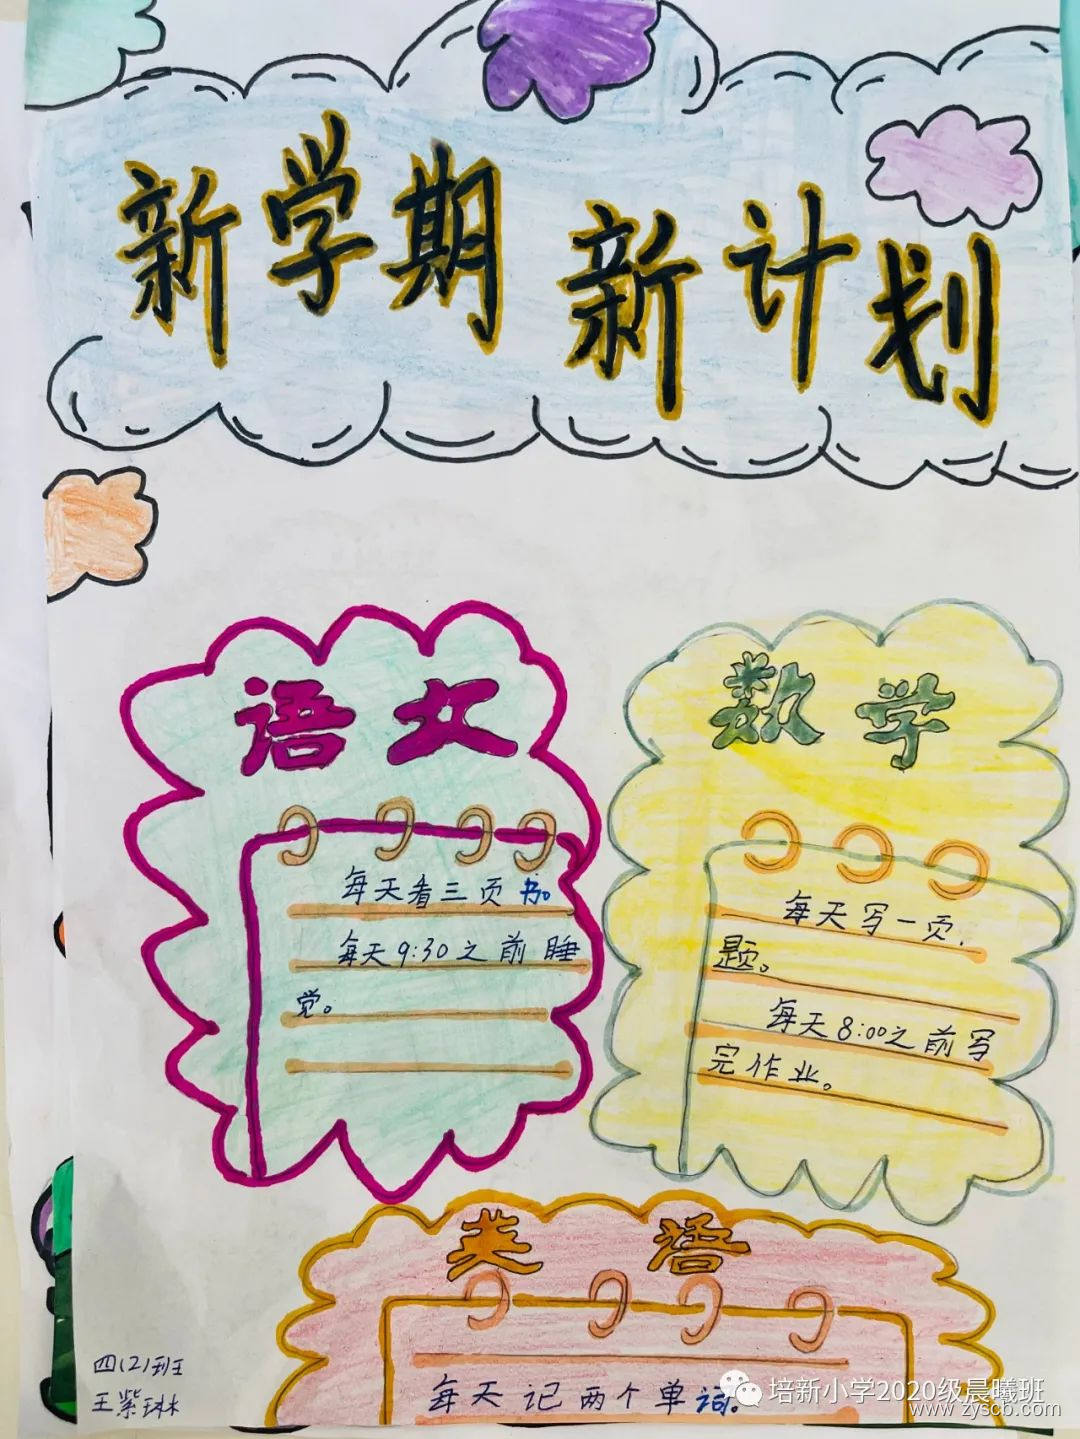 新学期 新计划
语文
每天看三页书。
每天9:30之前睡
觉。
数学
每天写一页
题。
每天8:00之前写
完作业。
英语
每天记两个单词。
四(2)班
王紫琳
培新小学2020级晨曦班
www.zyscb.com